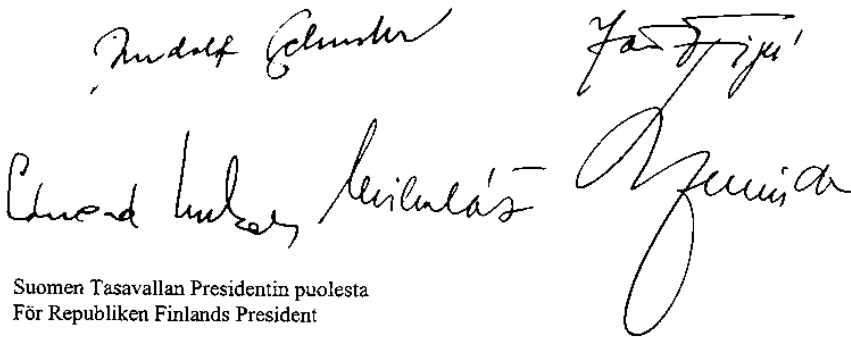 Rudolf Schuster
Eduard Kukan Mikuláš Dzurinda
Suomen Tasavallan Presidentin puolesta
För Republiken Finlands President